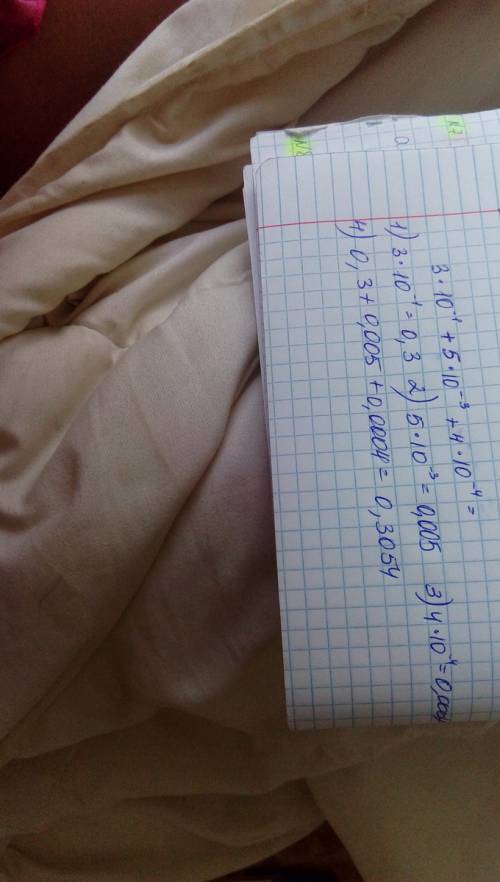 N7
3·10⁻¹ + 5·10⁻³ + 4·10⁻⁴ =
1) 3·10⁻¹ = 0,3 2) 5·10⁻³ = 0,005 3) 4·10⁻⁴ = 0,0004
4) 0,3 + 0,005 + 0,0004 = 0,3054
N8